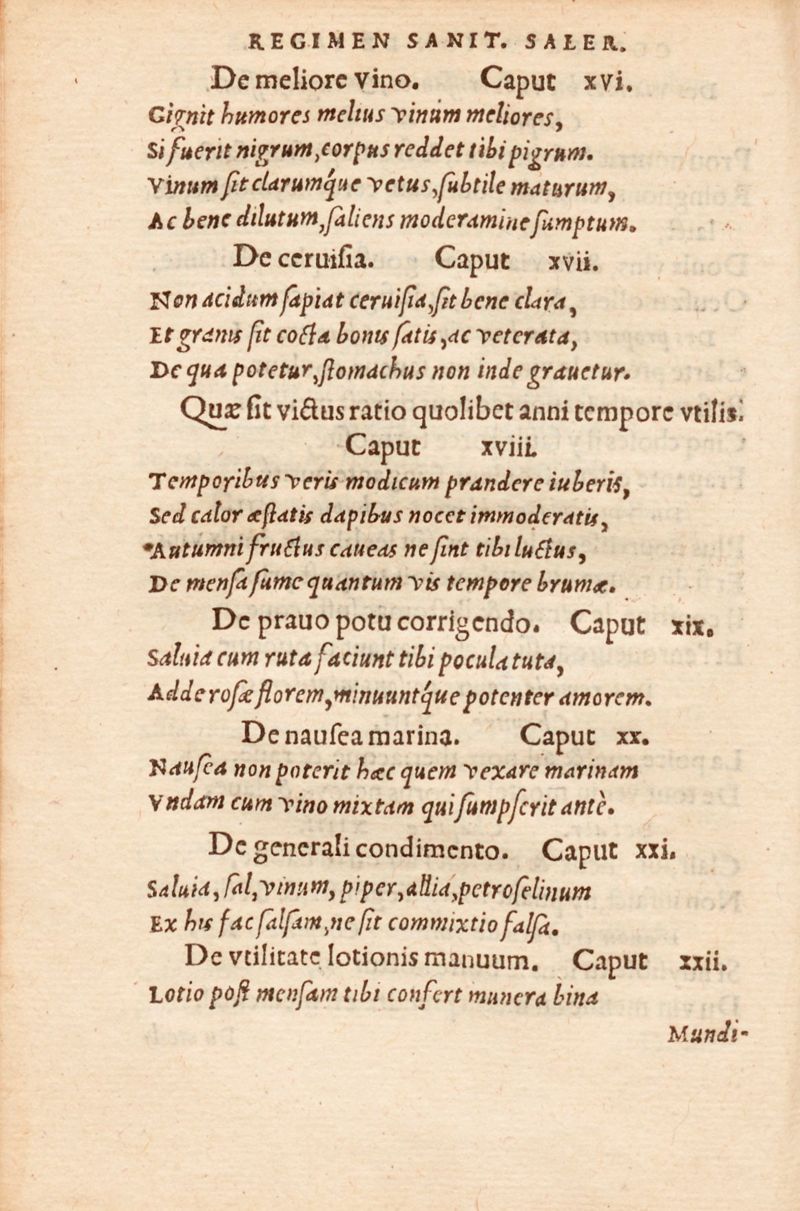 REGIMEN SANIT. SALER.
De meliore vino. Caput xvi.
Gignit humores melius vinum meliores,
Si fuerit nigrum, corpus reddet tibi pigrum.
Vinum ſit clarumq́ue vetus, ſubtile maturum,
Ac bene dilutum, ſaliens moderamine ſumptum.
De ceruiſia. Caput xvii.
Non acidum ſapiat ceruiſia, ſit bene clara,
Et granis ſit cocta bonis ſatis, ac veterata,
De qua potetur, ſtomachus non inde grauetur.
Quæ ſit victus ratio quolibet anni tempore vtilis.
Caput xviii.
Temporibus veris modicum prandere iuberis,
Sed calor æſtatis dapibus nocet immoderatis,
Autumni fructus caueas ne ſint tibi luctus,
De menſa ſume quantum vis tempore brumæ.
De prauo potu corrigendo. Caput xix.
Saluia cum ruta faciunt tibi pocula tuta,
Adde roſæ florem, minuuntq́ue potenter amorem.
De nauſea marina. Caput xx.
Nauſea non poterit hæc quem vexare marinam
Vndam cum vino mixtam qui ſumpſerit antè.
De generali condimento. Caput xxi.
Saluia, ſal, vinum, piper, allia, petroſelinum
Ex his fac ſalſam, ne ſit commixtio falſa.
De vtilitate lotionis manuum. Caput xxii.
Lotio poſt menſam tibi confert munera bina
Mundi-